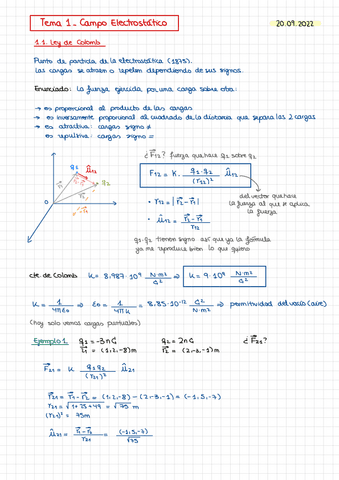 Tema 1 - Campo Electrostático
20.09.2022
1.1. Ley de Colomb
Punto de partida de la electrostática (1875).
Las cargas se atraen o repelen dependiendo de sus signos.
Enunciado: La fuerza ejercida por una carga sobre otra:
→ es proporcional al producto de las cargas
→ es inversamente proporcional al cuadrado de la distancia que separa las 2 cargas
→ es atractiva: cargas signo ≠
es repulsiva: cargas signo =
¿F⃗12? fuerza que hace q1 sobre q2
F⃗12 = K · q1·q2 / (r12)² û12
• r12 = |r⃗2 - r⃗1|
• û12 = r⃗2 - r⃗1 / r12
del vector que hace
la fuerza al que se aplica
la fuerza
q1·q2 tienen signo así que ya la fórmula
ya me reproduce bien lo que quiero
cte. de Colomb K = 8.987·10⁹ N·m²/C² ⇒ K = 9·10⁹ N·m²/C²
K = 1/4πε0 ⇒ ε0 = 1/4πK = 8.85·10⁻¹² C²/N·m² ⇒ permitividad del vacío (aire)
(hoy solo vemos cargas puntuales)
Ejemplo 1. q1 = -3nC q2 = 2nC ¿F⃗21?
r⃗1 = (1,2,-8)m r⃗2 = (2,-3,-1)m
F⃗21 = K q1q2 / (r21)² û21
r⃗21 = r⃗1 - r⃗2 = (1,2,-8) - (2,-3,-1) = (-1,5,-7)
r21 = √1+25+49 = √75 m
(r21)² = 75m
û21 = r⃗1 - r⃗2 / r21 = (-1,5,-7) / √75